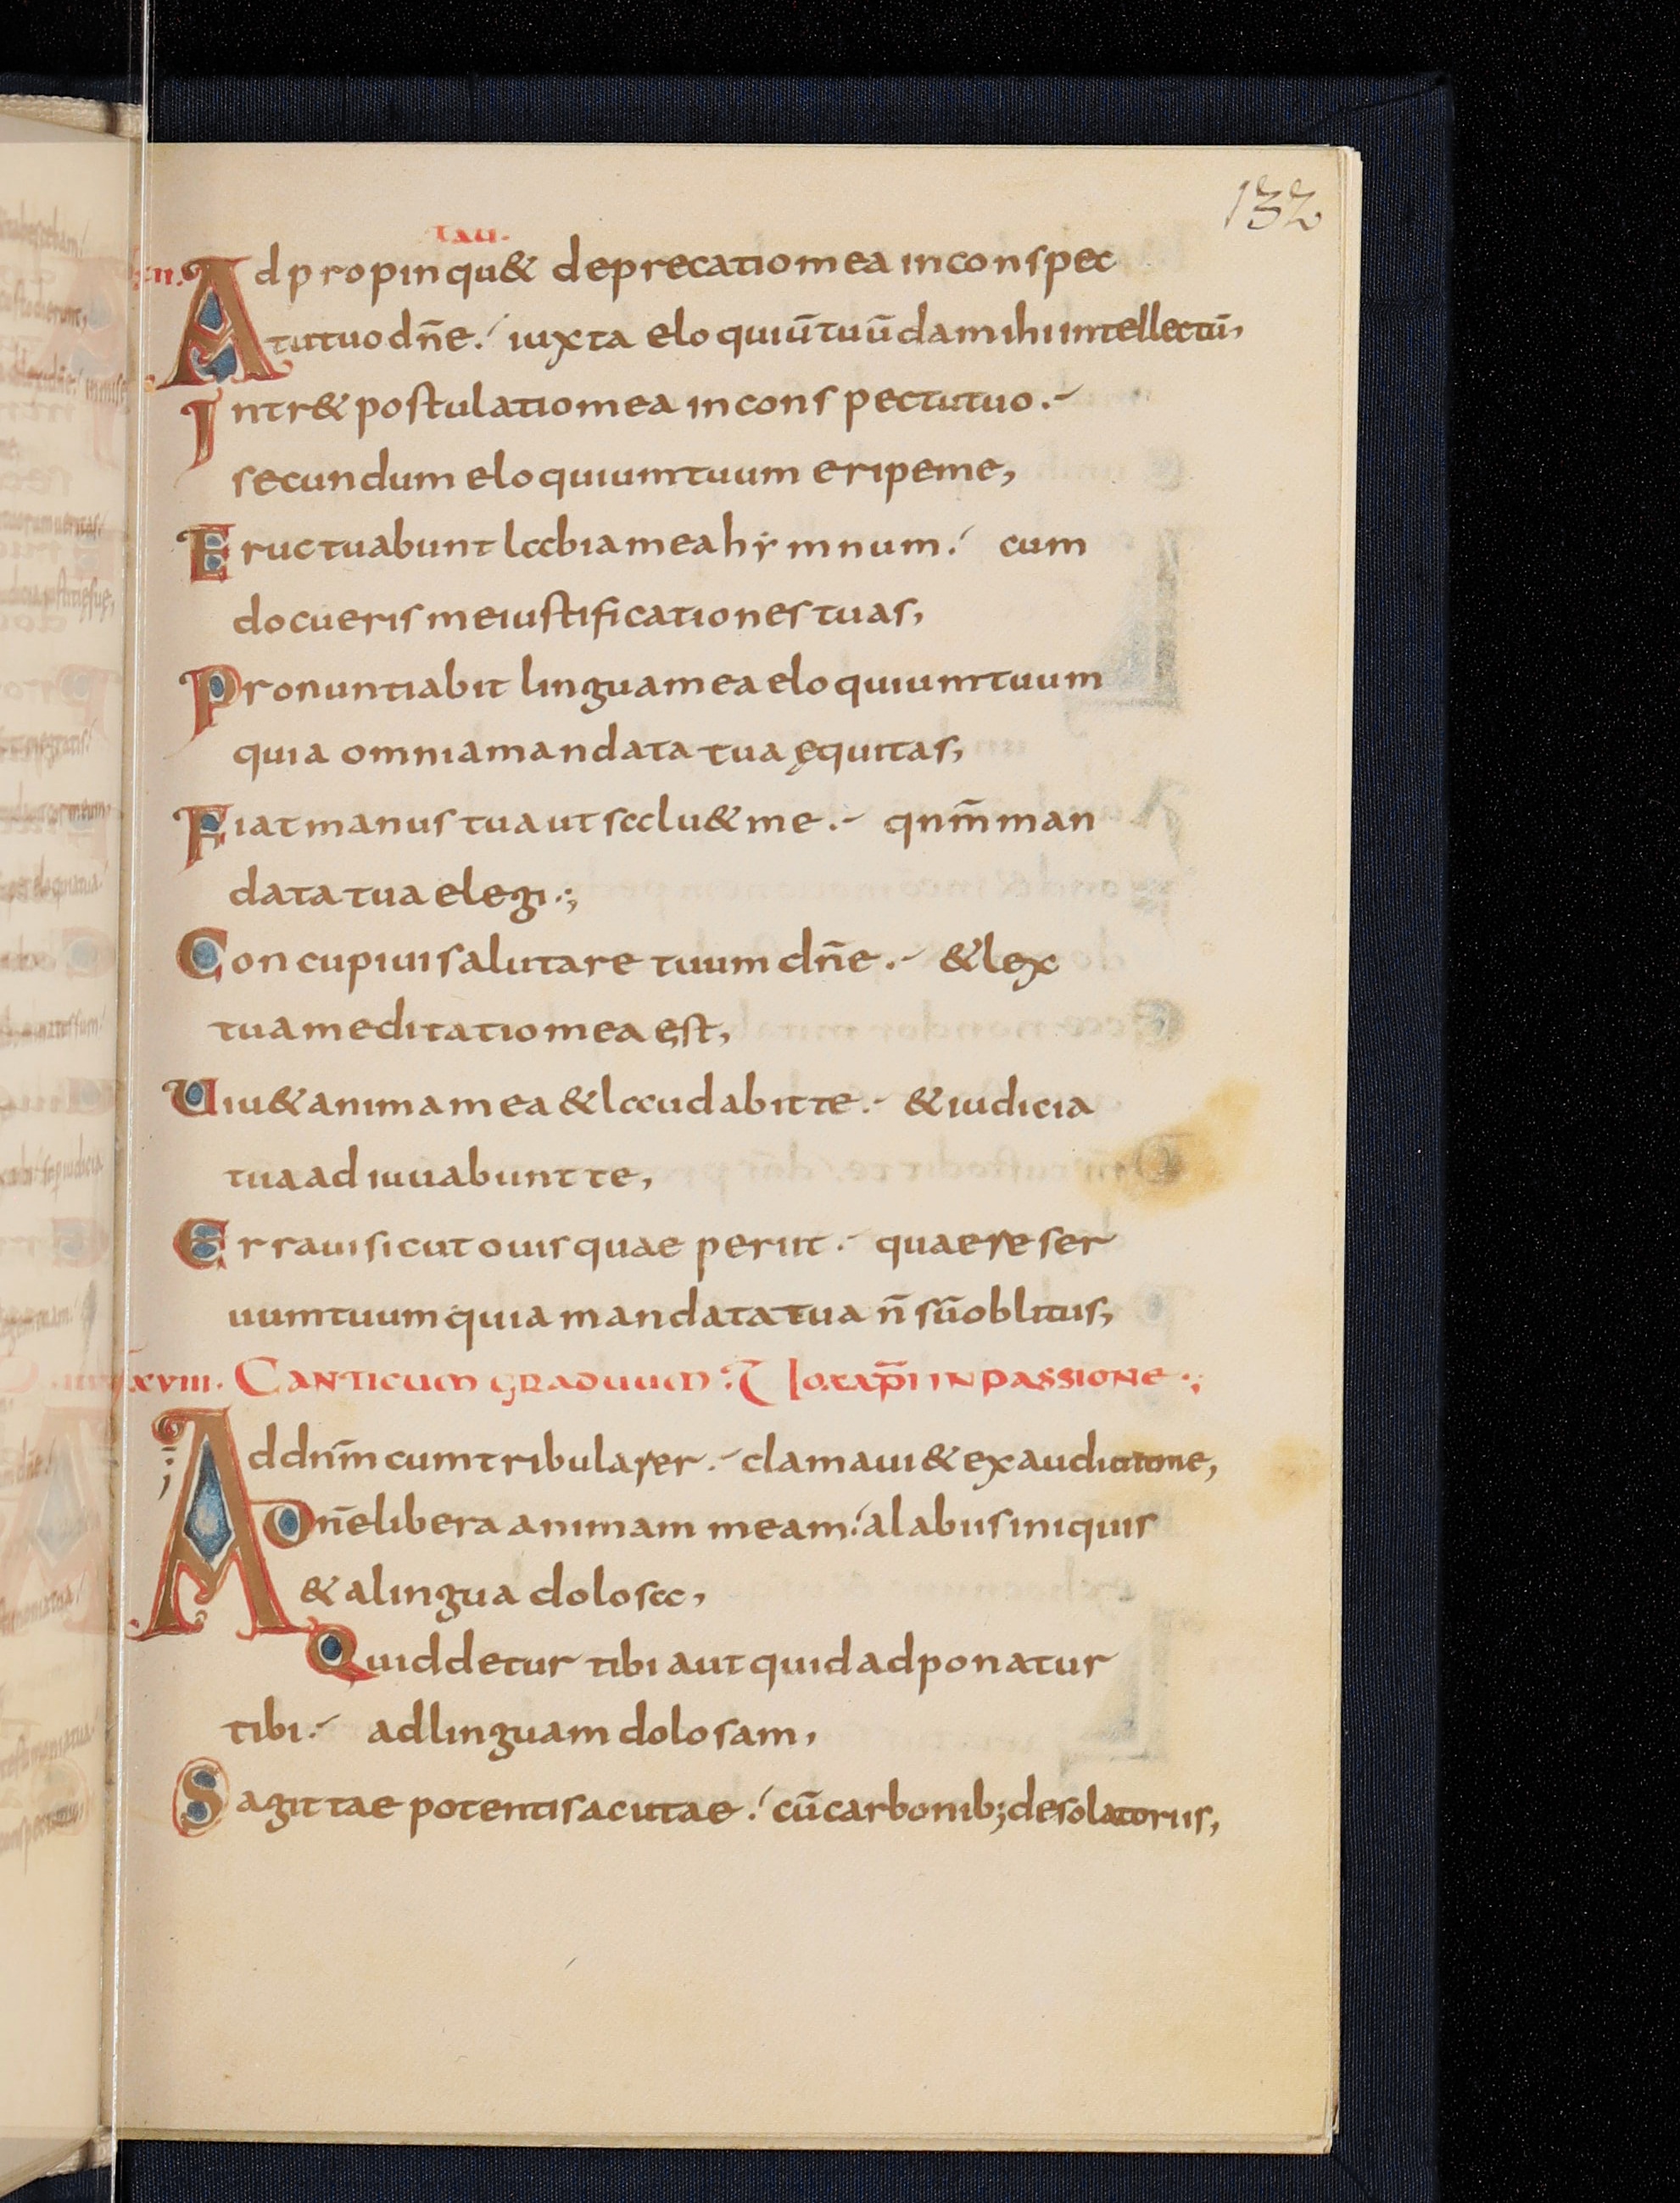 132
TAU.
Ad propinqu& deprecatio mea in conspec
tu tuo dn̄e. iuxta eloquiū tuū da mihi intellectū,
Intr& postulatio mea in conspectu tuo.
secundum eloquium tuum eripe me,
Eructuabunt labia mea hẏmnum. cum
docueris me iustificationes tuas,
Pronuntiabit lingua mea eloquium tuum
quia omnia mandata tua ęquitas,
Fiat manus tua ut salu& me. qnm̄ man
data tua elegi.;
Concupiui salutare tuum dn̄e. & lex
tua meditatio mea est,
Uiu& anima mea & laudabit te. & iudicia
tua adiuuabunt te,
Erraui sicut ouis quae periit. quaere ser
uum tuum quia mandata tua n̄ sū oblitus,
xviii. CANTICUM GRADUUM IN PASSIONE.;
Ad dnm̄ cum tribularer. clamaui & exaudiuit me,
Dn̄e libera animam meam. a labiis iniquis
& a lingua dolosa,
Quid detur tibi aut quid adponatur
tibi. ad linguam dolosam,
Sagittae potentis acutae. cū carbonib; desolatoriis,